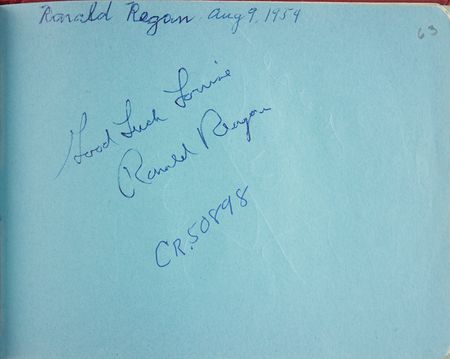 Ronald Regan Aug 9, 1954
63
Good Luck Louise
Ronald Reagan
CR.50898